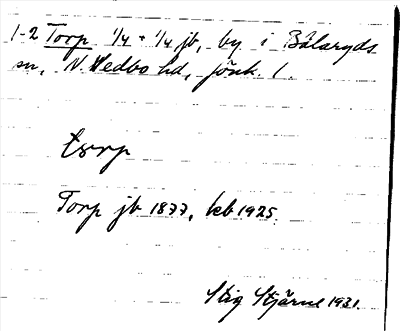 1-2 Torp 1/4 + 1/4 jb, by i Bälaryds
sn, N. Vedbo hd, Jönk. l.
tɷrp
Torp jb 1877, kb 1925.
Stig Stjärne 1931.